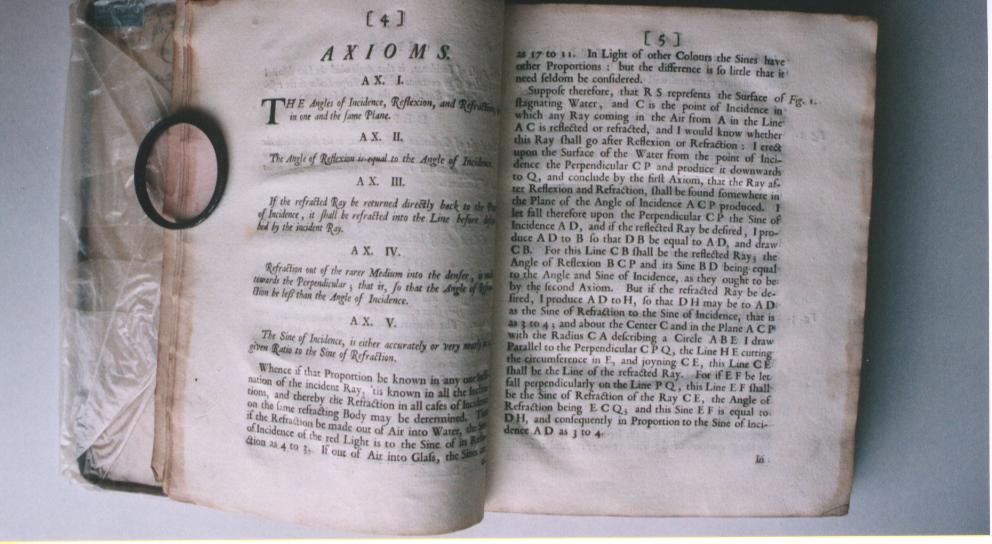 [ 4 ]
AXIOMS.
AX. I.
THE Angles of Incidence, Reflexion, and Refraction,
in one and the ſame Plane.
AX. II.
The Angle of Reflexion is equal to the Angle of Incidence.
AX. III.
If the refracted Ray be returned directly back to the
of Incidence, it ſhall be refracted into the Line before
bed by the incident Ray.
AX. IV.
Refraction out of the rarer Medium into the denſer, is
towards the Perpendicular; that is, ſo that the Angle of
ction be leſs than the Angle of Incidence.
AX. V.
The Sine of Incidence, is either accurately or very nearly in a
given Ratio to the Sine of Refraction.
Whence if that Proportion be known in any one
nation of the incident Ray, 'tis known in all the
tions, and thereby the Refraction in all caſes of Incidence
on the ſame refracting Body may be determined.
if the Refraction be made out of Air into Water, the
of Incidence of the red Light is to the Sine of its
ction as 4 to 3. If out of Air into Glaſs, the Sines are
[ 5 ]
as 17 to 11. In Light of other Colours the Sines have
other Proportions: but the difference is ſo little that it
need ſeldom be conſidered.
Suppoſe therefore, that R S repreſents the Surface of Fig. 1.
ſtagnating Water, and C is the point of Incidence in
which any Ray coming in the Air from A in the Line
A C is reflected or refracted, and I would know whether
this Ray ſhall go after Reflexion or Refraction: I erect
upon the Surface of the Water from the point of Inci-
dence the Perpendicular C P and produce it downwards
to Q, and conclude by the firſt Axiom, that the Ray af-
ter Reflexion and Refraction, ſhall be found ſomewhere in
the Plane of the Angle of Incidence A C P produced. I
let fall therefore upon the Perpendicular C P the Sine of
Incidence A D, and if the reflected Ray be deſired, I pro-
duce A D to B ſo that D B be equal to A D, and draw
C B. For this Line C B ſhall be the reflected Ray; the
Angle of Reflexion B C P and its Sine B D being equal
to the Angle and Sine of Incidence, as they ought to be
by the ſecond Axiom. But if the refracted Ray be de-
ſired, I produce A D to H, ſo that D H may be to A D
as the Sine of Refraction to the Sine of Incidence, that is
as 3 to 4; and about the Center C and in the Plane A C P
with the Radius C A deſcribing a Circle A B E I draw
Parallel to the Perpendicular C P Q, the Line H E cutting
the circumference in E, and joyning C E, this Line C E
ſhall be the Line of the refracted Ray. For if E F be let
fall perpendicularly on the Line P Q, this Line E F ſhall
be the Sine of Refraction of the Ray C E, the Angle of
Refraction being E C Q; and this Sine E F is equal to
D H, and conſequently in Proportion to the Sine of Inci-
dence A D as 3 to 4.
In